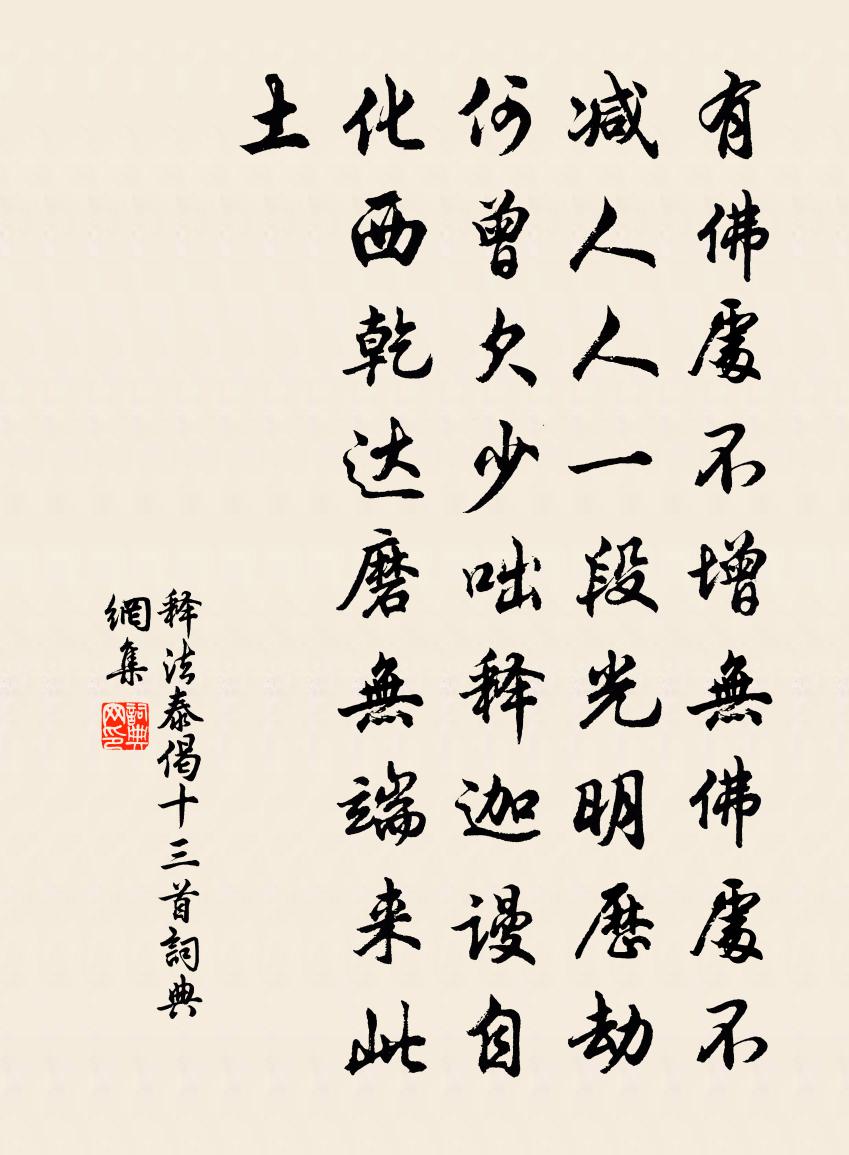 有佛處不增無佛處不
减人人一段光明歷劫
何曾欠少咄释迦谩自
化西乾达磨無端来此
土
释法泰偈十三首詞典
網集
詞典
网印